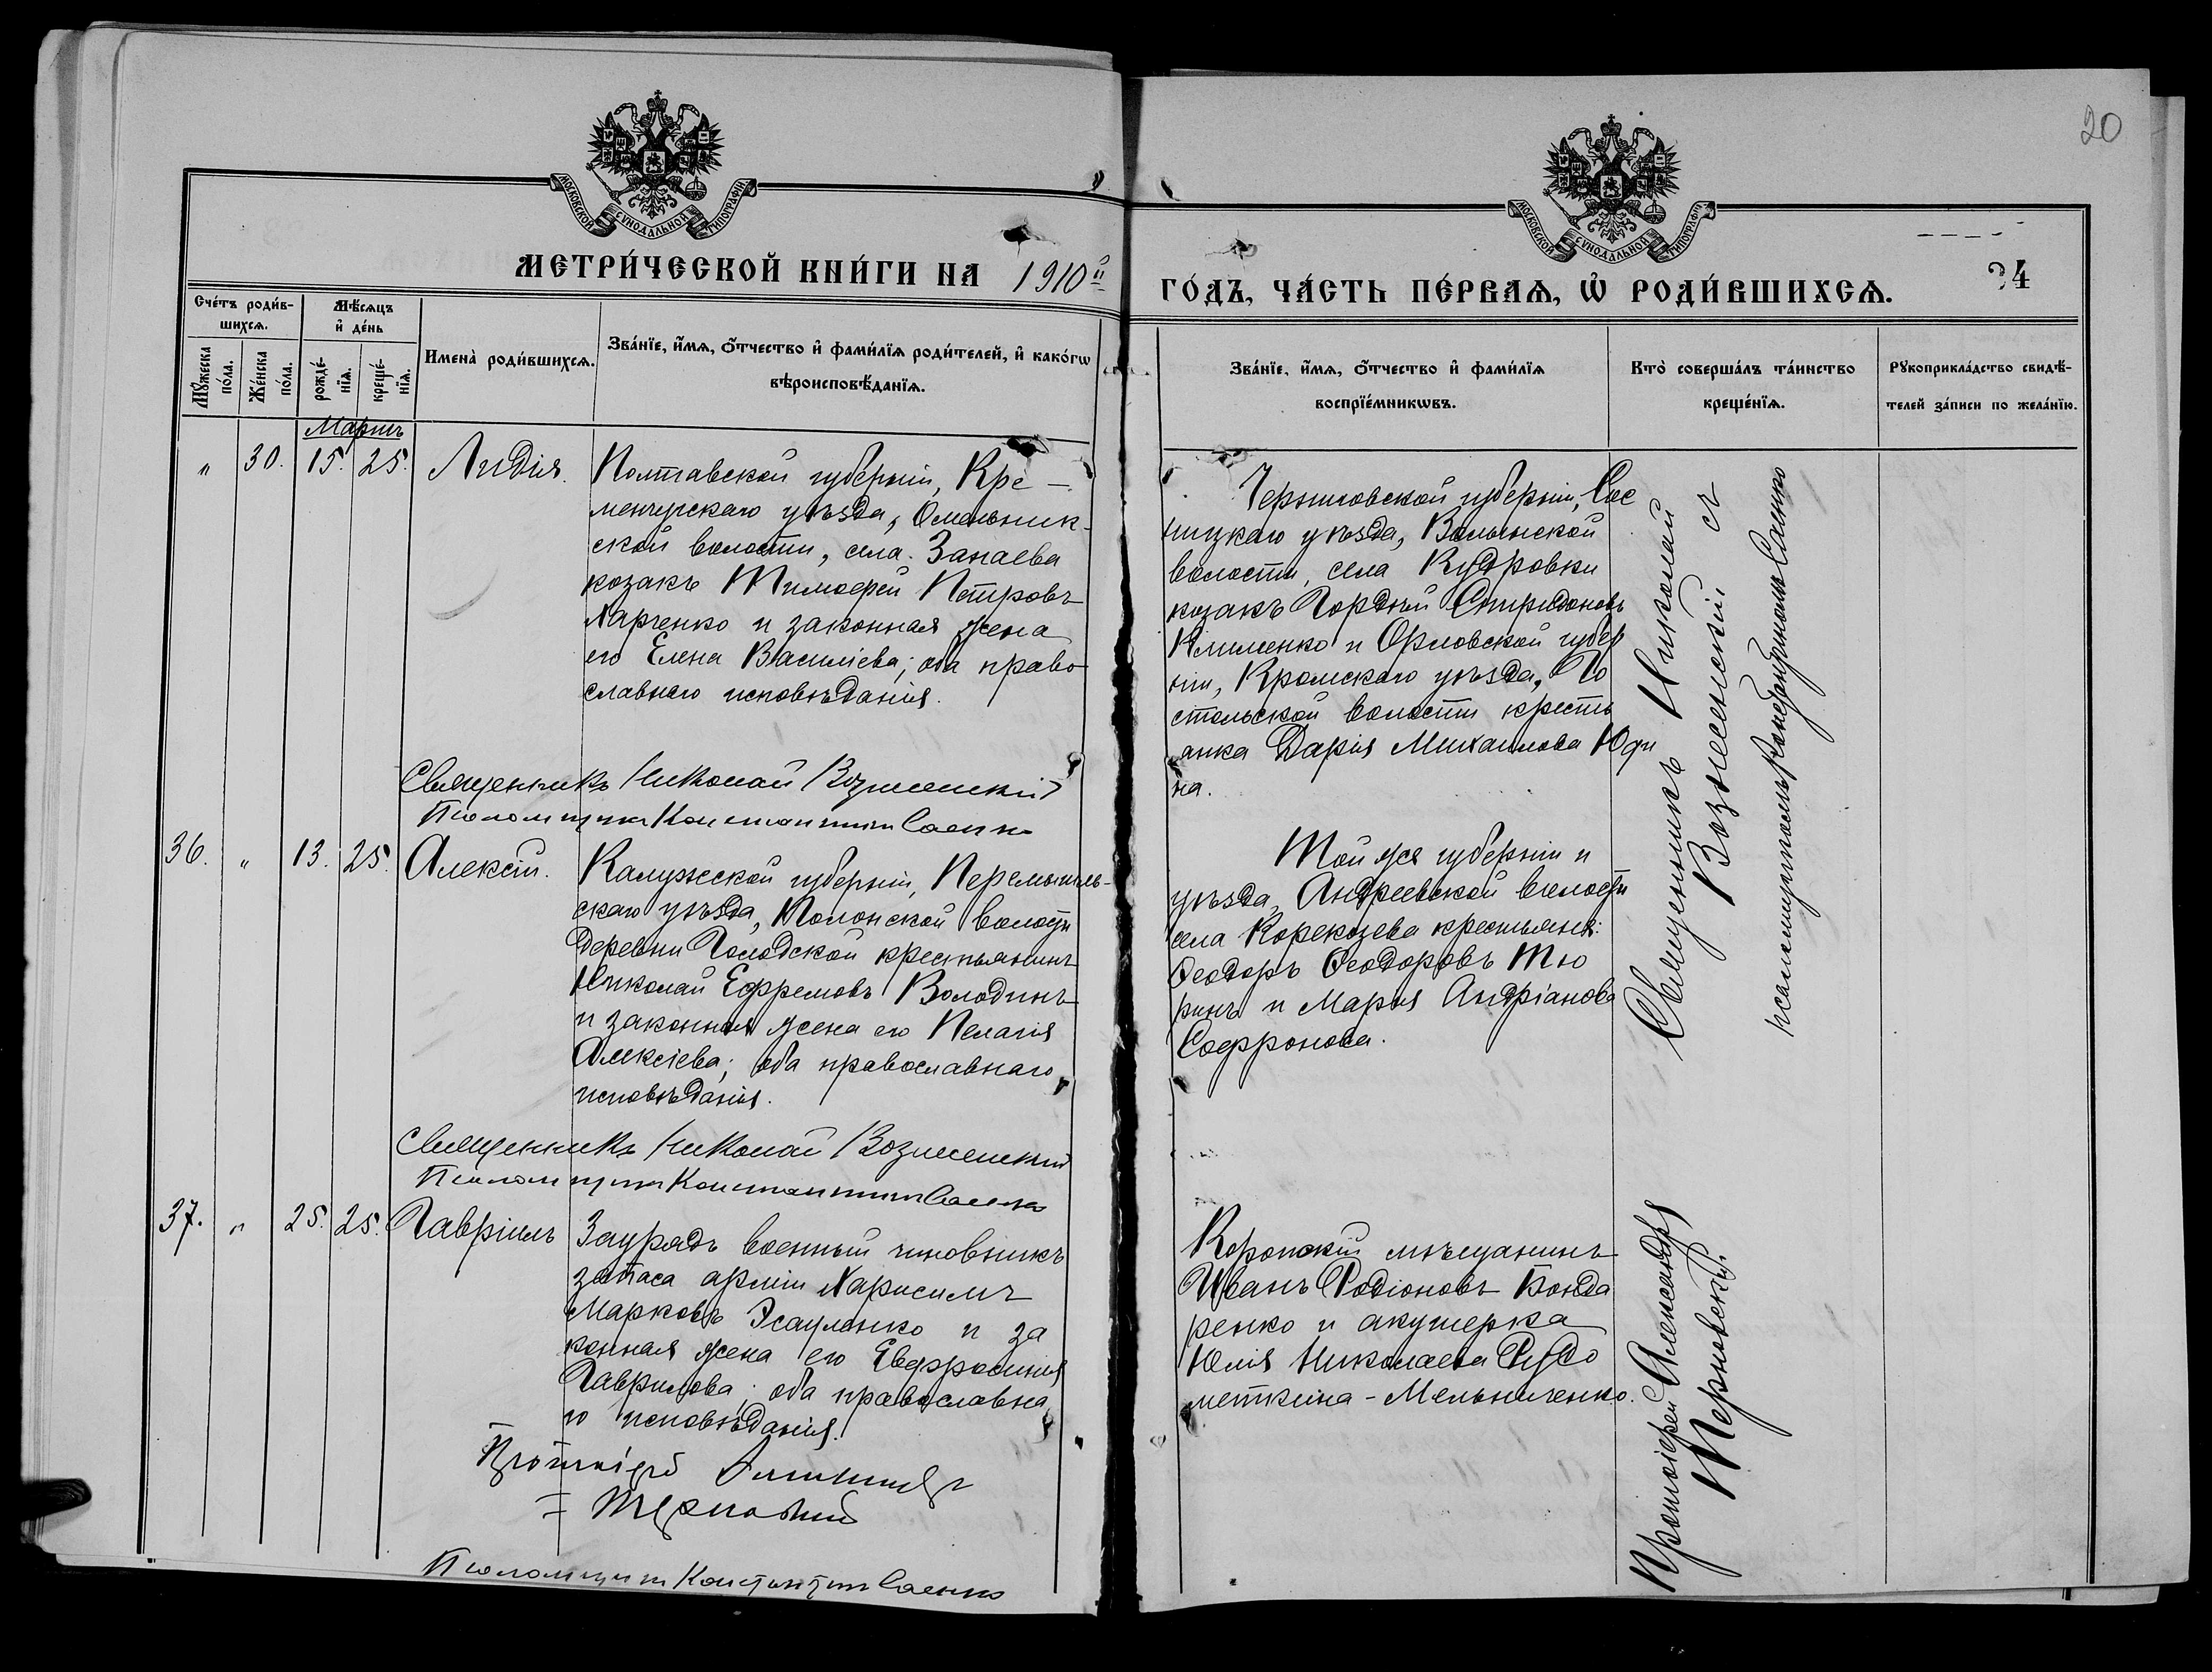 20
МОСКОВСКОЙ СѴНОДАЛЬНОЙ ТИПОГРАФІИ.
МОСКОВСКОЙ СѴНОДАЛЬНОЙ ТИПОГРАФІИ.
МЕТРИ́ЧЕСКОЙ КНИ́ГИ НА 1910й
ГО́ДЪ, ЧА́СТЬ ПЕ́РВАЯ, Ѡ҆ РОДИ́ВШИХСЯ.
34
Сче́тъ роди́в-
шихся.
Мѣ́сяцъ
и҆ де́нь
Мꙋ́жеска
по́ла.
Же́нска
по́ла.
рожде́-
нїя.
креще́-
нїя.
Имена̀ роди́вшихся.
Зва́нїе, и҆́мя, ѻ҆́тчество и҆ фами́лїя роди́телей, и҆ како́гѡ
вѣроисповѣ́данїя.
Зва́нїе, и҆́мя, ѻ҆́тчество и҆ фами́лїя
воспрїе́мникѡвъ.
Кто̀ соверша́лъ та́инство
креще́нїя.
Рꙋкоприкла́дство свидѣ́-
телей за́писи по жела́нїю.
Мартъ
" 30. 15. 25. Лидія.
Полтавской губерніи, Кре-
менчугскаго уѣзда, Омельник-
ской волости, села Запаева
козакъ Тимоѳей Петровъ
Харченко и законная жена
его Елена Василіева; оба право
славнаго исповѣданія.
Черниговской губерніи, Сос
ницкаго уѣзда, Волынской
волости, села Кудровки
козакъ Гордѣй Спиридоновъ
Клименко и Орловской губер
ніи, Кромскаго уѣзда, Го
стомльской волости кресть
янка Дарія Михаилова Юди
на.
Священникъ Николай Вознесенскій
Псаломщикъ Константинъ Саенко
Священникъ Николай
Вознесенскій съ
псаломщикомъ Константиномъ Саенко
36. " 13. 25. Алексій.
Калужской губерніи, Перемышль-
скаго уѣзда, волости
деревни Голодской крестьянинъ
Николай Ефремовъ Володинъ
и законная жена его Пелагія
Алексіева; оба православнаго
исповѣданія.
Той же губерніи и
уѣзда, Андреевской волости
села Корекозева крестьяне:
Ѳеодоръ Ѳеодоровъ Тю
ринъ и Марія Андріанова
Софронова.
Священникъ Николай Вознесенскій
Псаломщикъ Константинъ Саенко
37. " 25. 25. Гавріилъ
Заурядъ военный чиновникъ
запаса арміи
Марковъ Эсауленко и за
конная жена его Евфросинія
Гаврилова; оба православна
го исповѣданія.
Коропскій мѣщанинъ
Иванъ Родіоновъ Бонда
ренко и акушерка
Юлія Николаева Рудо
меткина-Мельниченко.
Протоіерей Александръ
Терновскій
Протоіерей Александръ
Терновскій
Псаломщикъ Константинъ Саенко